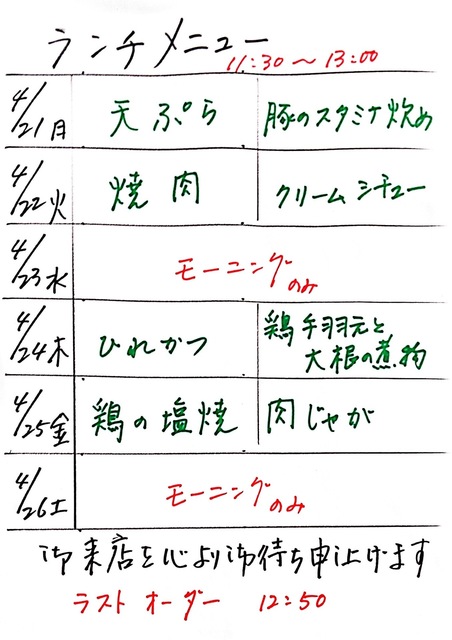 ランチメニュー
11:30～13:00
4/21月 天ぷら 豚のスタミナ炒め
4/22火 焼肉 クリームシチュー
4/23水 モーニングのみ
4/24木 ひれかつ 鶏手羽元と
大根の煮物
4/25金 鶏の塩焼 肉じゃが
4/26土 モーニングのみ
御来店を心より御待ち申上げます
ラストオーダー 12:50